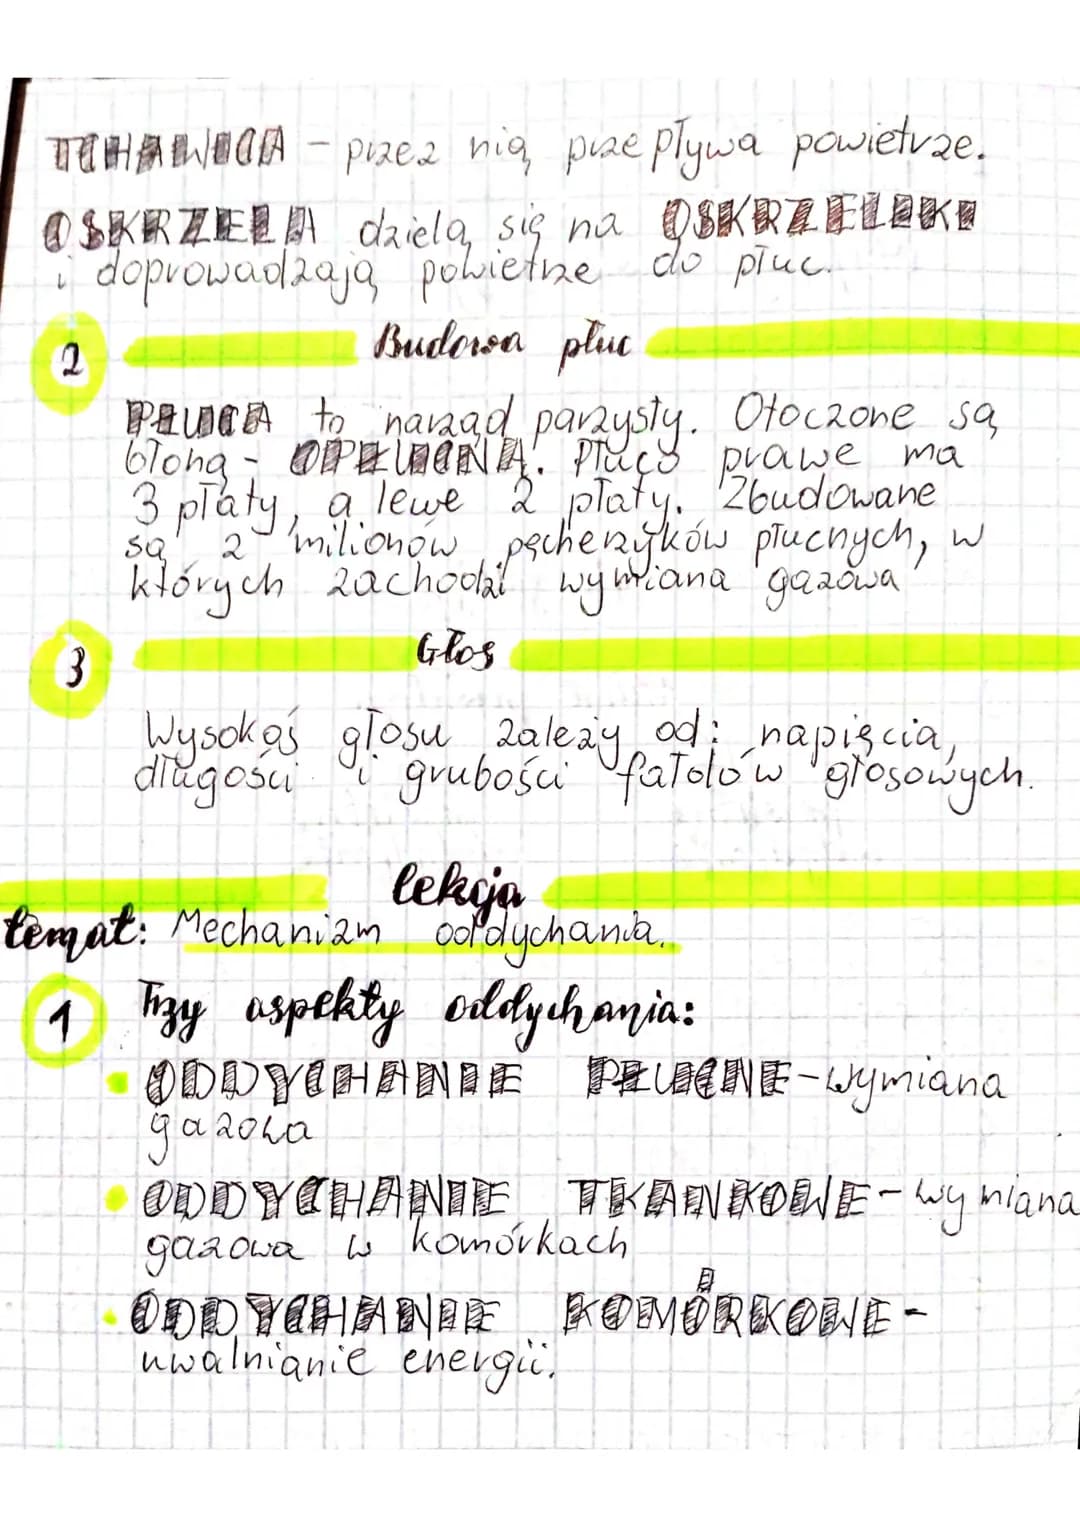 TCHAWICA - przez nią przepływa powietrze.
OSKRZELA dzielą się na OSKRZELIKI
i doprowadzają powietrze do płuc.
2 Budowa płuc
PŁUCA to narząd parzysty. Otoczone są
błoną - OPŁUCNĄ. Płuco prawe ma
3 płaty, a lewe 2 płaty. Zbudowane
są 2 milionów pęcherzyków płucnych, w
których zachodzi wymiana gazowa
3 Głos
Wysokoś głosu zależy od: napięcia,
długości i grubości fałdów głosowych.
lekcja
temat: Mechanizm oddychania.
1 Trzy aspekty oddychania:
ODDYCHANIE PŁUCNE - wymiana
gazowa
ODDYCHANIE TKANKOWE - wymiana
gazowa w komórkach
ODDYCHANIE KOMÓRKOWE -
uwalnianie energii.